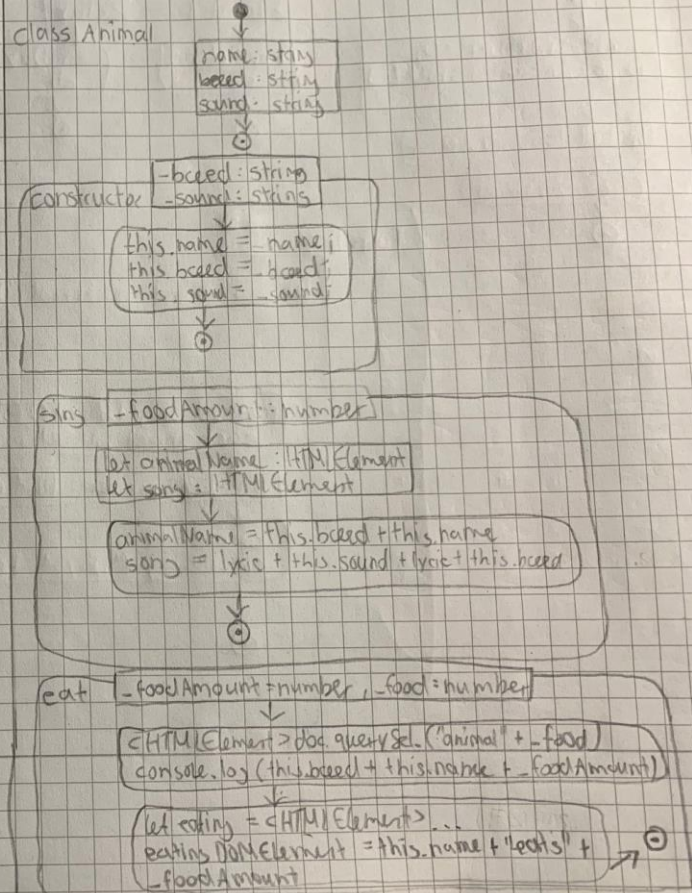 class Animal
name: string
breed: string
sound: string
_breed: string
constructor _sound: string
this.name = _name;
this.breed = _breed;
this.sound = _sound;
sing _foodAmount: number
let animalName: HTMLElement
let song: HTMLElement
animalName = this.breed + this.name
song = lyric + this.sound + lyric + this.breed
eat _foodAmount: number, _food: number
<HTMLElement> doc.querySel.("animal" + _food)
console.log(this.breed + this.name + _foodAmount)
let eating = <HTMLElement>...
eatingDOMElement = this.name + "eats" +
_foodAmount